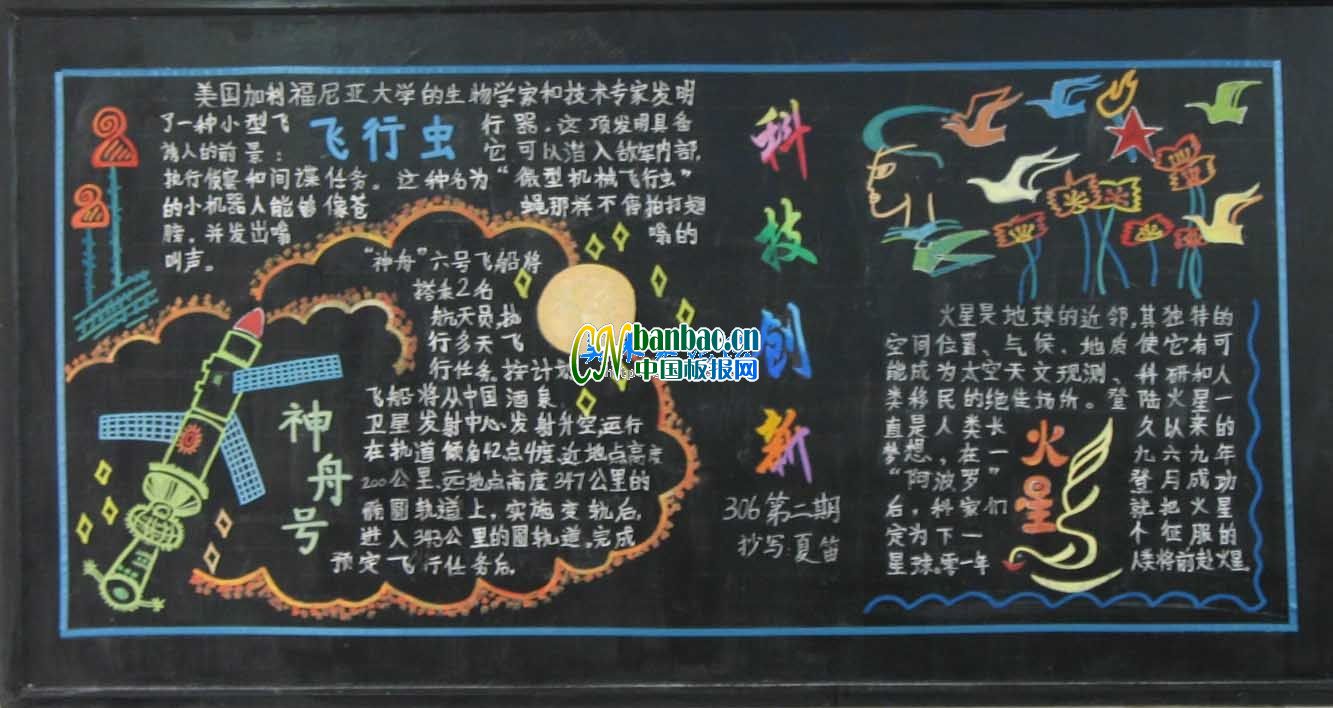 美国加利福尼亚大学的生物学家和技术专家发明
了一种小型飞
飞行虫
行器。这项发明具备
诱人的前景:
它可以潜入敌军内部,
执行侦察和间谍任务。这种名为"微型机械飞行虫"
的小机器人能够像苍
蝇那样不停拍打翅
膀,并发出嗡
嗡的
叫声。
"神舟"六号飞船将
搭乘2名
航天员,执
行多天飞
行任务。按计划
飞船将从中国酒泉
卫星发射中心发射升空,运行
在轨道倾角42点4度,近地点高度
200公里,远地点高度347公里的
椭圆轨道上,实施变轨后,
进入343公里的圆轨道。完成
预定飞行任务后。
神舟号
科技创新
306第二期
抄写:夏笛
火星是地球的近邻,其独特的
空间位置、气候、地质使它有可
能成为太空天文观测、科研和人
类移民的绝佳场所。登陆火星一
直是人类长
久以来的
梦想,在一
九六九年
"阿波罗"
登月成功
后,科家们
就把火星
定为下一
个征服的
星球。零一年
人类将前赴火星
火星
CN banbao.cn
中国板报网